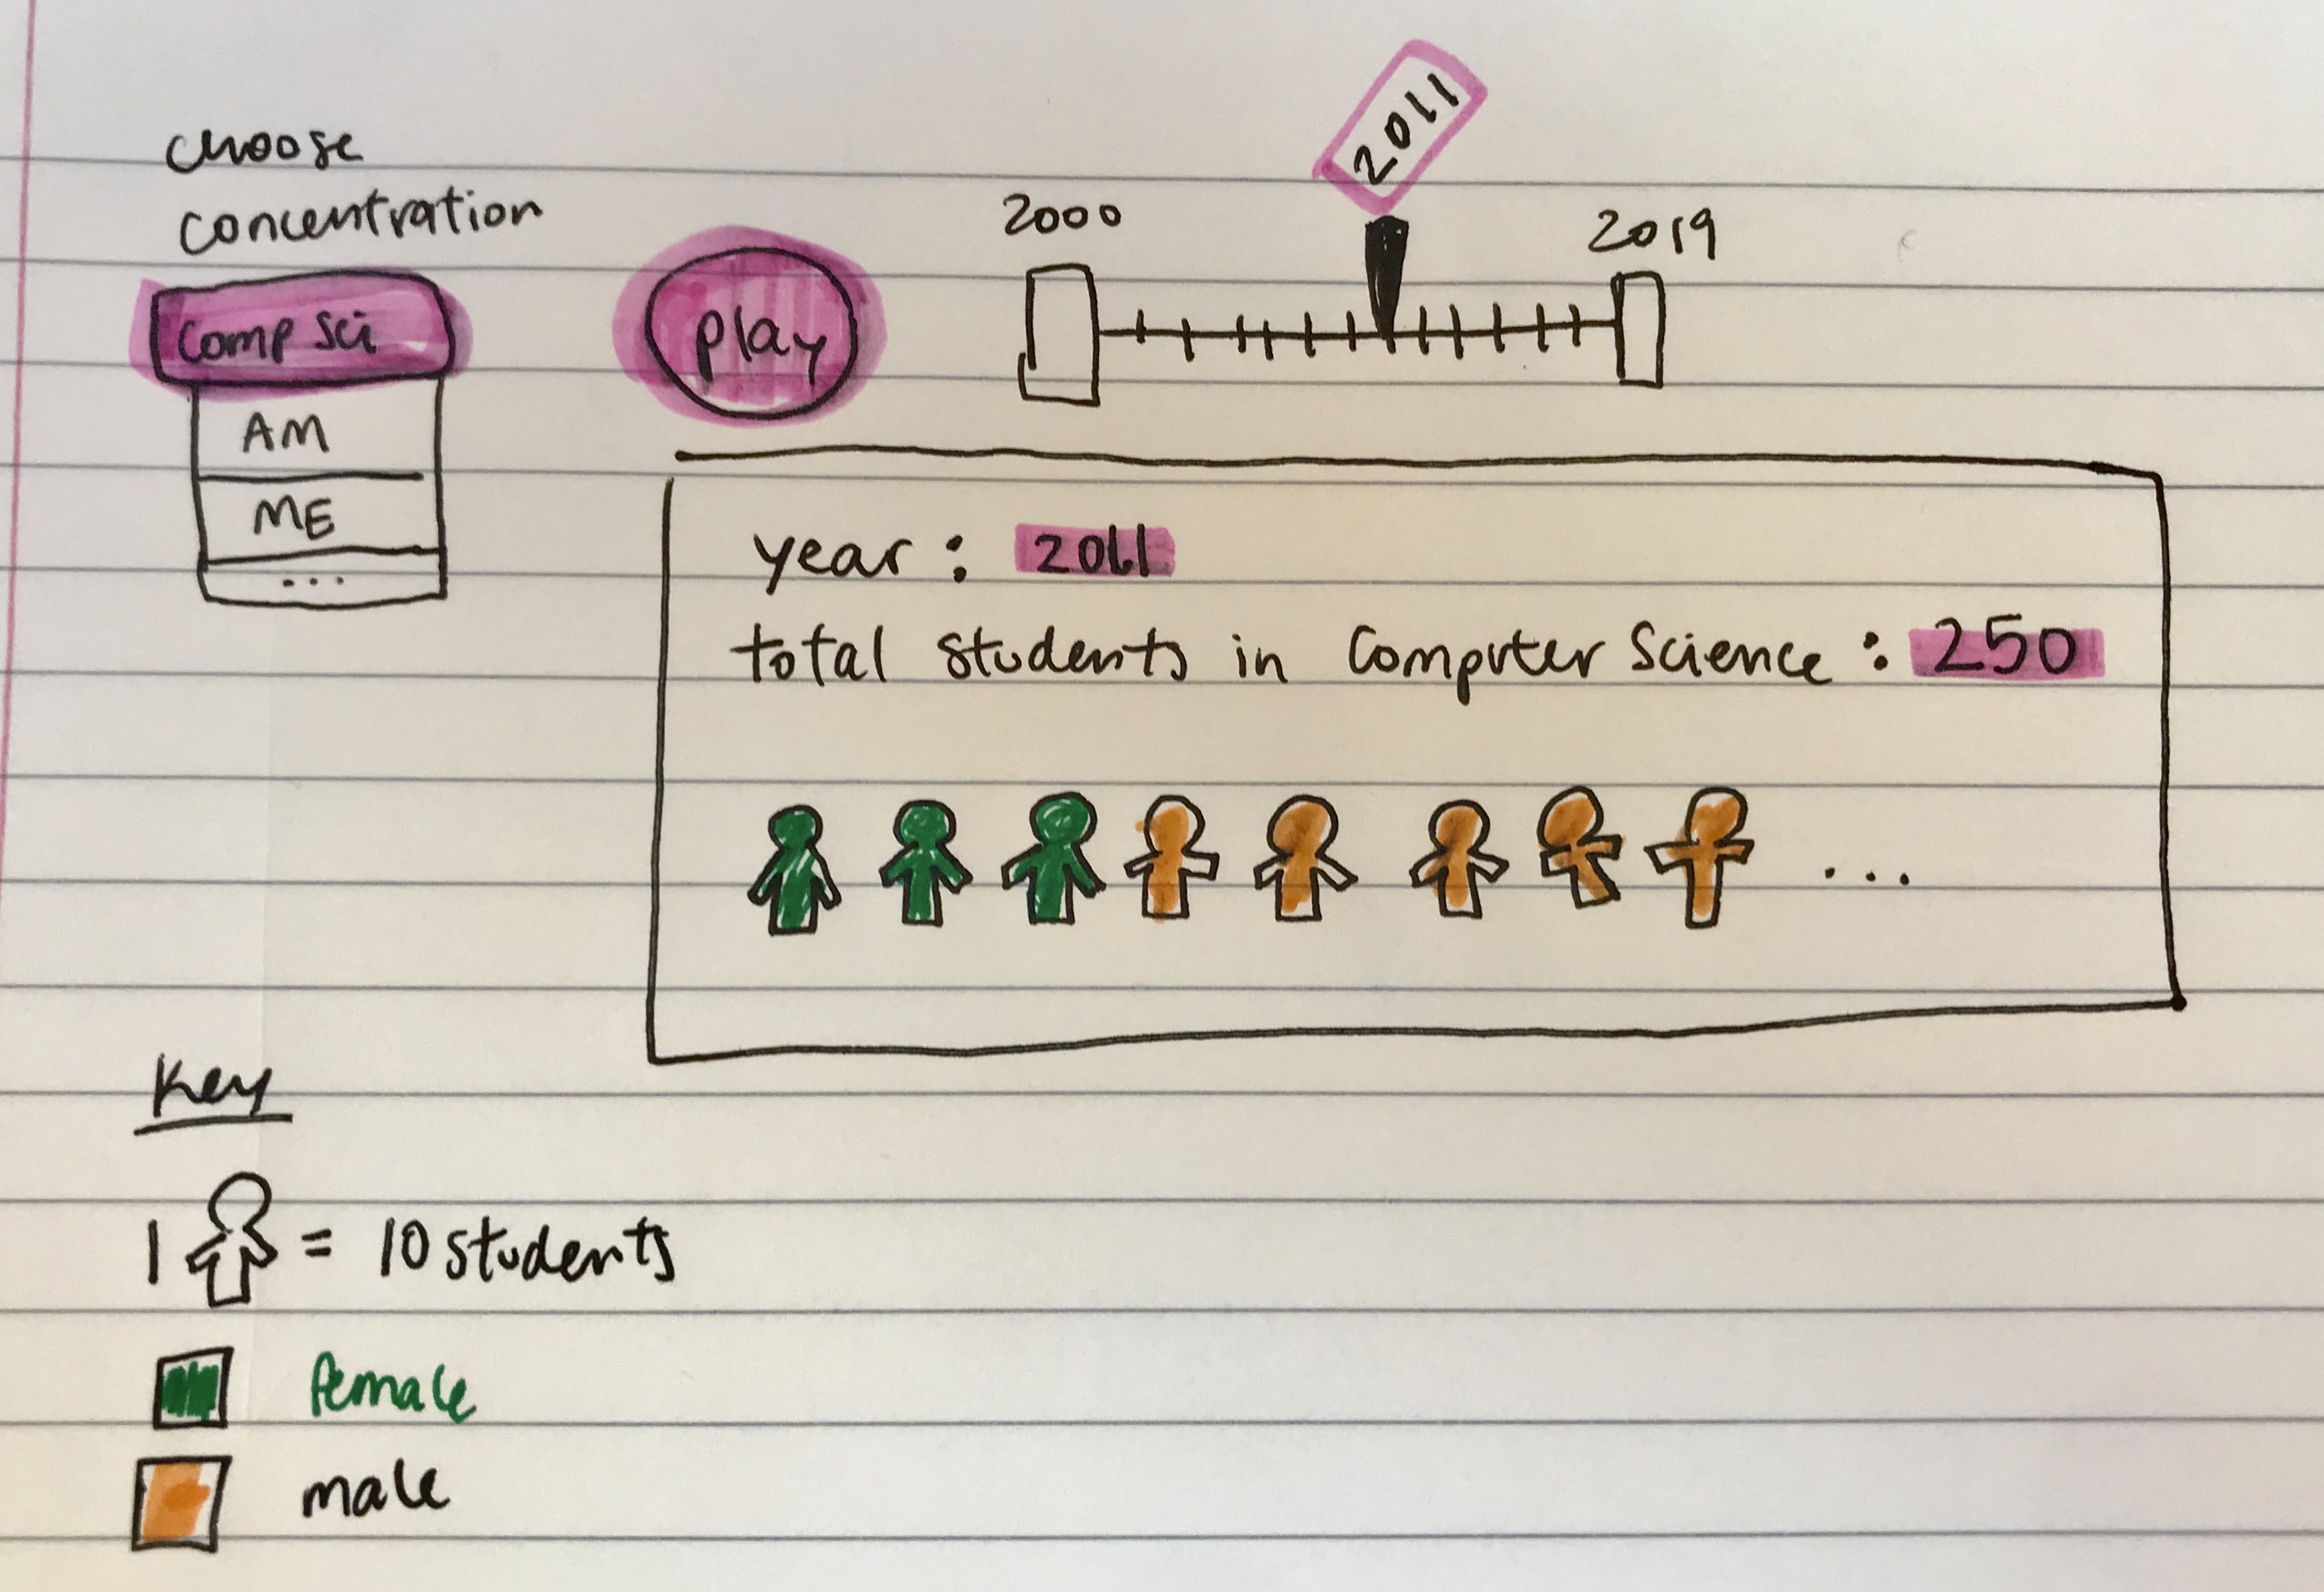 choose
concentration
Comp Sci
AM
ME
...
play
2000
2011
2019
year : 2011
total students in Computer Science : 250
...
Key
1 = 10 students
female
male